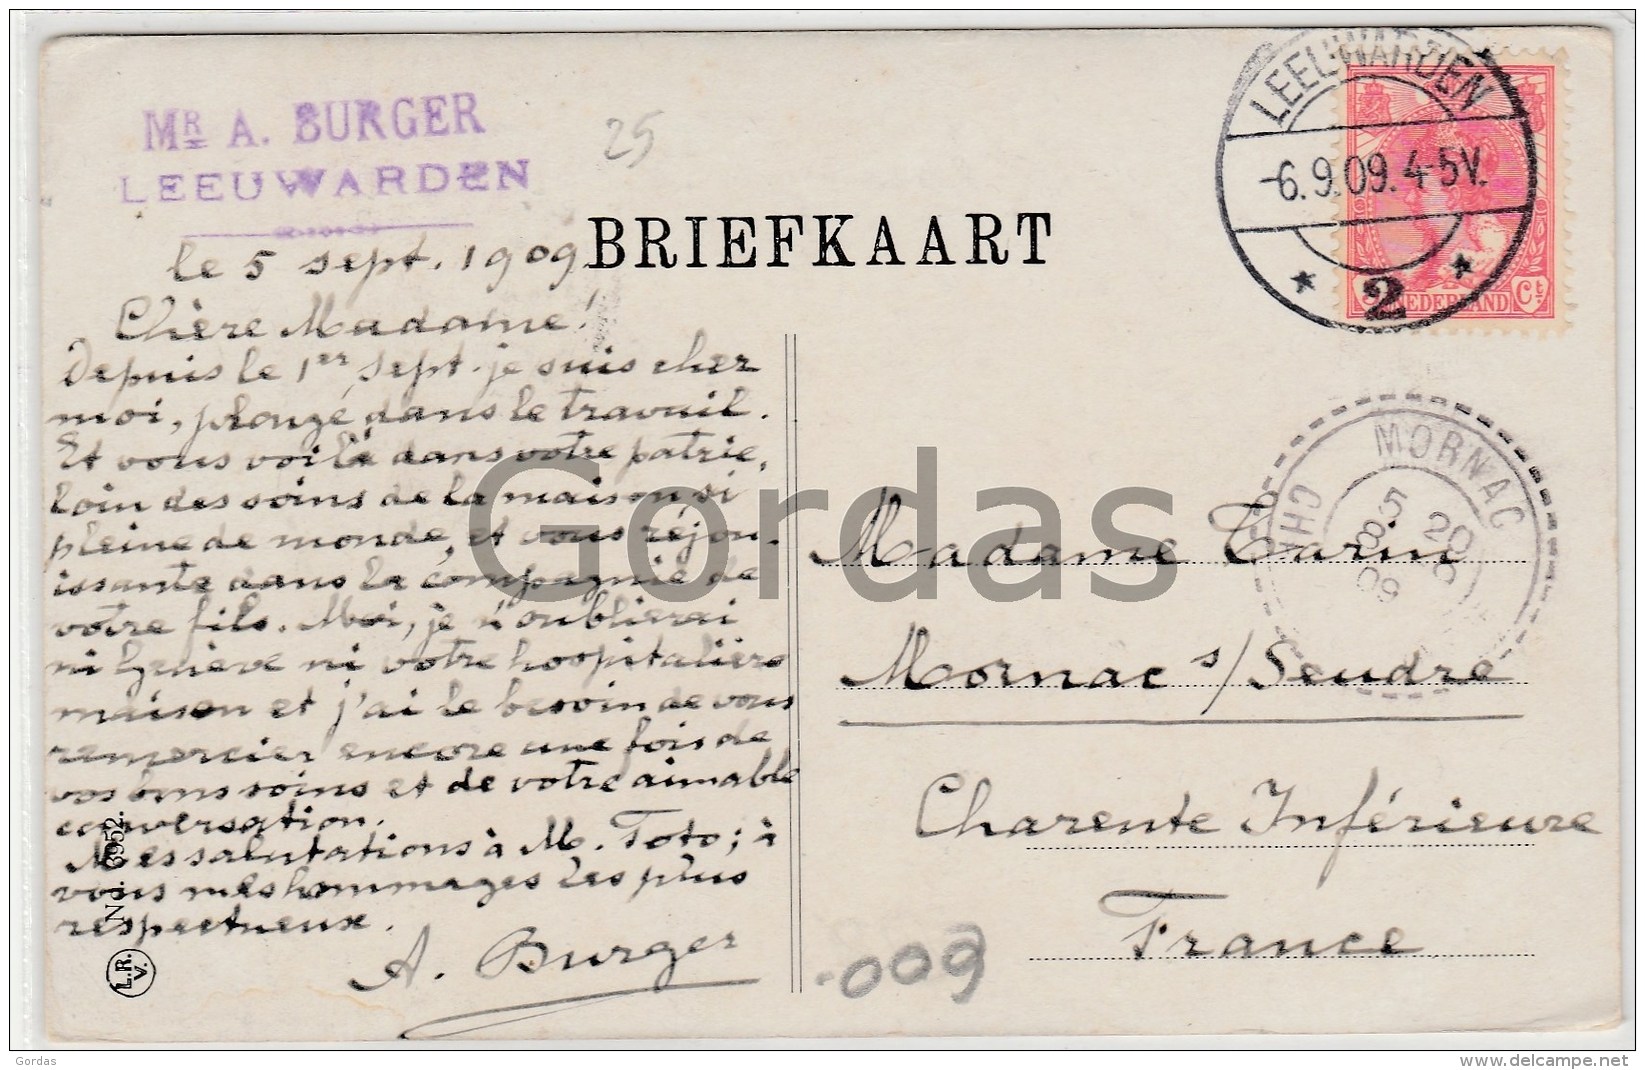 MR A. BURGER
LEEUWARDEN
25
BRIEFKAART
LEEUWARDEN
-6.9.09.4-5V.
2
NEDERLAND Ct
le 5 sept. 1909
Chère Madame!
Depuis le 1er sept. je suis cher
moi, plongé dans le travail.
Et vous voilà dans votre patrie,
loin des soins de la maison si
pleine de monde, et vous réjou-
issante dans la compagnie de
votre fils. Moi, je n'oublierai
ni Genève ni votre hospitalière
maison et j'ai le besoin de vous
remercier encore une fois de
vos bons soins et de votre aimable
conversation.
Mes salutations à M. Toto; à
vous mes hommages les plus
respectueux.
A. Burger
No. 6952.
L.R.
V.
MORNAC
CH
5 20
8
09
Madame
Mornac s/Seudre
Charente Inférieure
France
.009
Gordas
Gordas
www.delcampe.net